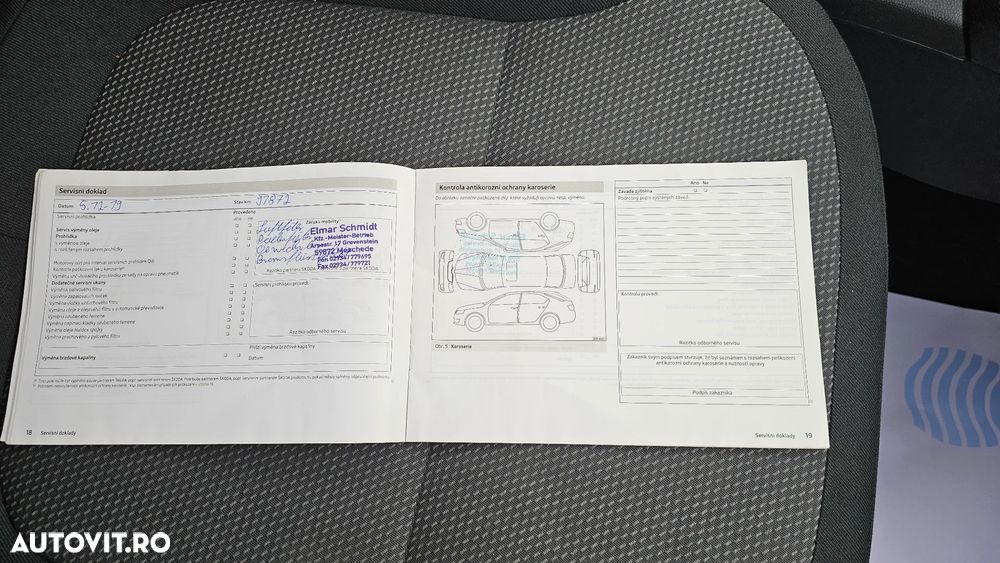 Servisní doklad
Datum: 5.12.19
Stav km: 37872
Servisní prohlídka
Provedeno
ano ne
Záruka mobility
Servis výměny oleje
Prohlídka
s výměnou oleje
s rozšířeným rozsahem prohlídky
Luftfilter
Elmar Schmidt
Kfz.-Meister-Betrieb
Arpestr. 17 Grevenstein
59872 Meschede
Fon 02934/779695
Fax 02934/779721
Motorový olej pro interval servisních prohlídek QI6
Kontrola poškození laku karoserie
Dodatečné servisní úkony
Výměna palivového filtru
Výměna zapalovacích svíček
Výměna vložky vzduchového filtru
Výměna oleje a olejového filtru v automatické převodovce
Výměna ozubeného řemene
Výměna napínací kladky ozubeného řemene
Výměna oleje Haldex spojky
Výměna prachového a pylového filtru
Servisní prohlídku provedl:
Razítko odborného servisu
Výměna brzdové kapaliny
Příští výměna brzdové kapaliny
Datum:
18 Servisní doklady
Kontrola antikorozní ochrany karoserie
Do obrázku označte poškozené díly, které vyžadují opravu, resp. výměnu.
Obr. 5 Karoserie
Ano Ne
Závada zjištěna
Podrobný popis zjištěných závad:
Kontrolu provedl:
Razítko odborného servisu
Zákazník svým podpisem stvrzuje, že byl seznámen s rozsahem poškození
antikorozní ochrany karoserie a nutností opravy.
Podpis zákazníka
Servisní doklady 19
AUTOVIT.RO